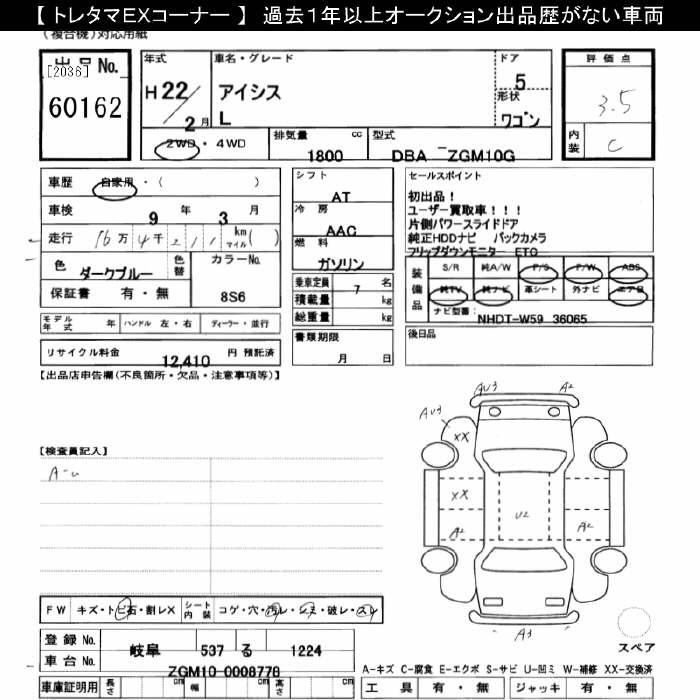 【 トレタマEXコーナー 】 過去1年以上オークション出品歴がない車両
(複合機)対応用紙
出品No.
[2036]
60162
年式
H 22/2月
車名・グレード
アイシス
L
ドア
5
形状
ワゴン
評価点
3.5
内装
C
2WD・4WD
排気量 1800 cc
型式 DBA ZGM10G
車歴 自家用・( )
車検 9年 3月
走行 16万 4千 211 km マイル( )
色 ダークブルー
色替
カラーNo.
8S6
保証書 有・無
シフト
AT
冷房
AAC
燃料
ガソリン
乗車定員 7 名
積載量 kg
総重量 kg
セールスポイント
初出品!
ユーザー買取車!!!
片側パワースライドドア
純正HDDナビ バックカメラ
フリップダウンモニター ETC
装備品
S/R 純A/W P/S P/W ABS
純TV 純ナビ 革シート 外ナビ エアB
ナビ型番: NHDT-W59 36065
モデル年式 年 ハンドル 左・右 ディーラー・並行
書類期限
月 日
後日品
リサイクル料金 12,410 円 預託済
【出品店申告欄(不良箇所・欠品・注意事項等)】
AU3 A2
AU3
XX
XX
U2
A2 A2
A3
【検査員記入】
A-u
FW キズ・トビ石・割レX
シート内装 コゲ・穴・汚レ・シミ・破レ・スレ
登録No. 岐阜 537 る 1224
車台No. ZGM10-0008778
スペア
A-キズ C-腐食 E-エクボ S-サビ U-凹ミ W-補修 XX-交換済
車庫証明用 長さ cm 幅 cm 高さ cm
工具 有・無 ジャッキ 有・無